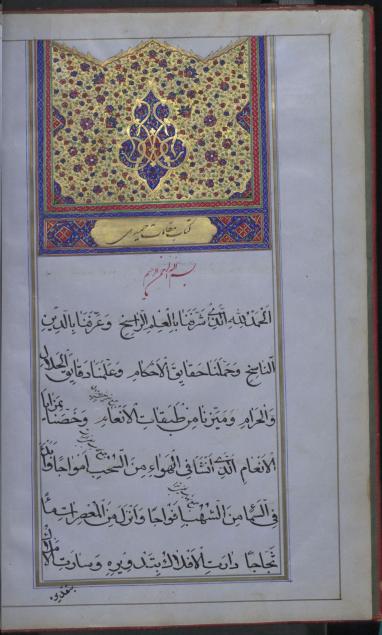 كتاب مقامات حميدى
بسم الله الرحمن الرحيم
الحمد لله الذى شرفنا بالعلم الراسخ وعرفنا بالدين
الناسخ وحملنا حقايق الاحكام وعلمنا دقايق الحلال
والحرام وميزنا من طبقات الانعام وخصنا بمزايا
الانعام الذى انشا فى الهواء من السحب امواجا
فى السما من الشهب افواجا وانزل من المعصرات ماء
ثجاجا دارت الافلاك بتدويره وسارت
بتقديره